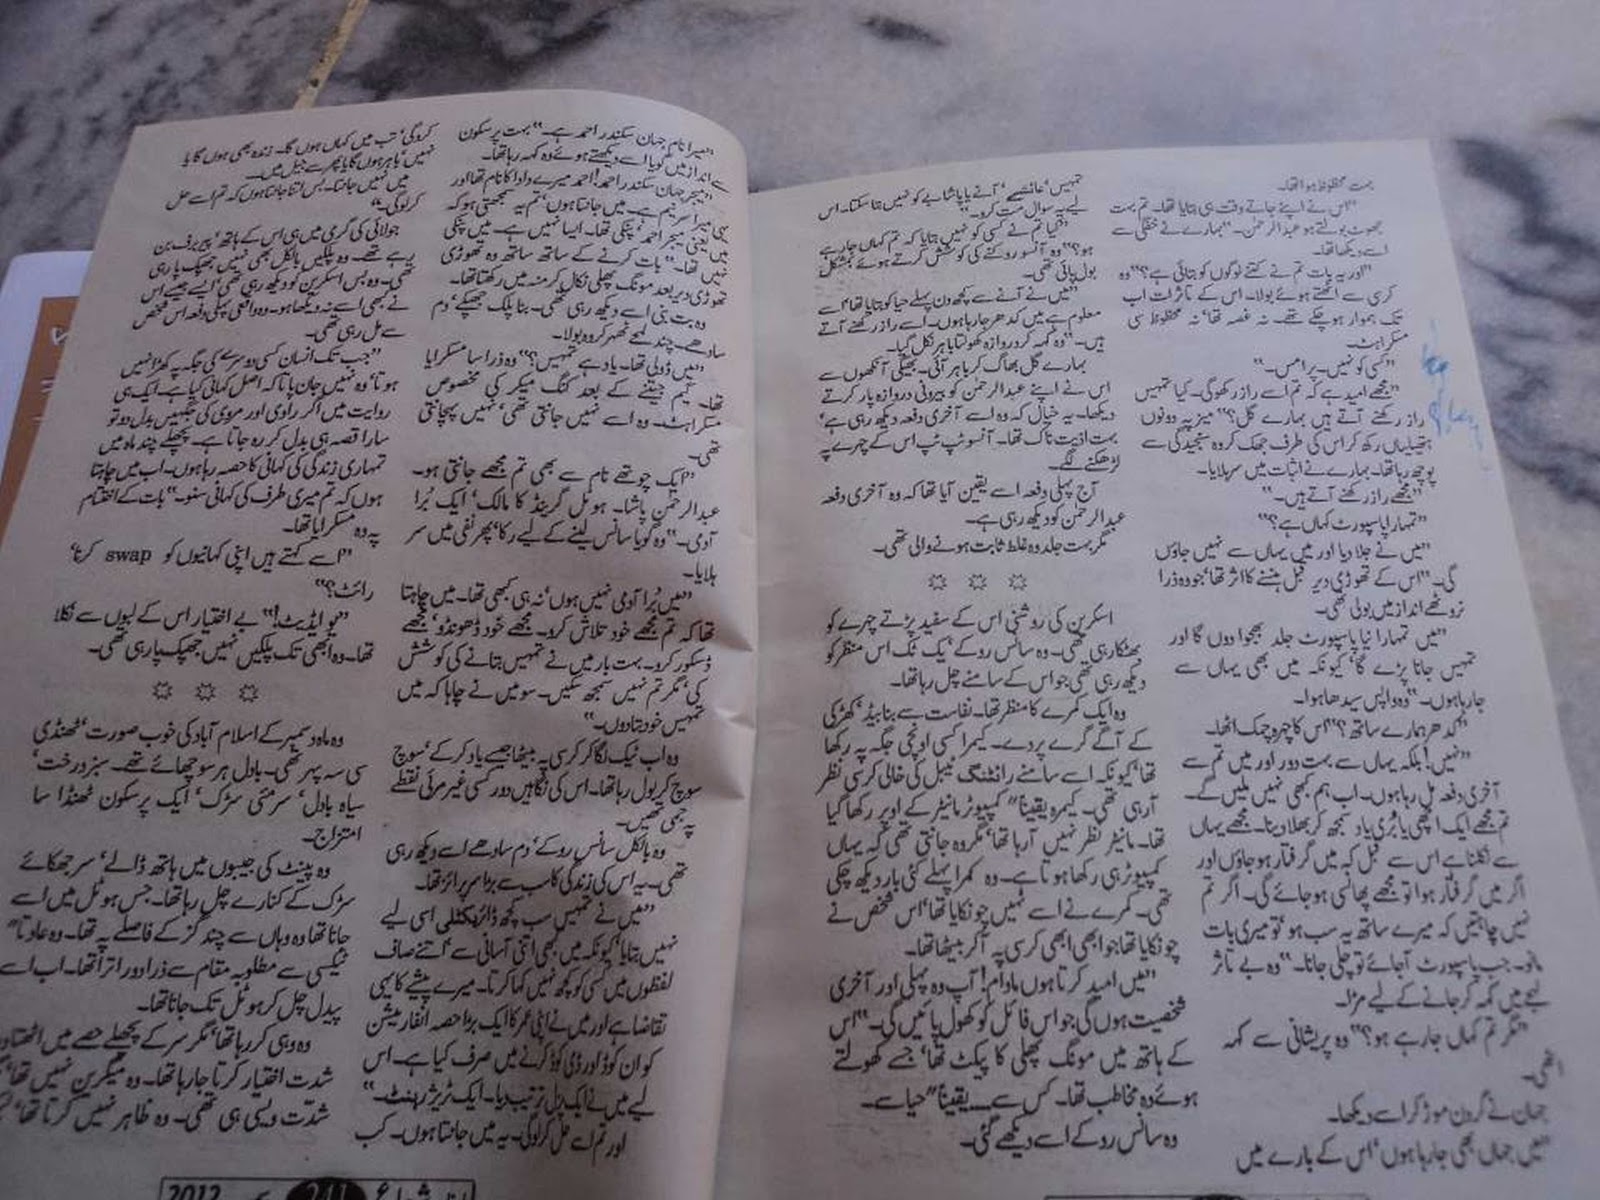 بہت محظوظ ہوا تھا۔
”اس نے اپنے جاتے وقت ہی بتایا تھا۔ تم بہت
جھوٹ بولتے ہو عبدالرحمٰن۔“ بہارے نے خفگی سے
اسے دیکھا تھا۔
”اور یہ بات تم نے کتنے لوگوں کو بتائی ہے؟“ وہ
کرسی سے اٹھتے ہوئے بولا۔ اس کے تاثرات اب
تک ہموار ہو چکے تھے۔ نہ غصہ تھا‘ نہ محظوظ سی
مسکراہٹ۔
”کسی کو نہیں۔ پرامس۔“
”مجھے امید ہے کہ تم اسے راز رکھو گی۔ کیا تمہیں
راز رکھنے آتے ہیں بہارے گل؟“ میز پہ دونوں
ہتھیلیاں رکھ کر اس کی طرف جھک کر وہ سنجیدگی سے
پوچھ رہا تھا۔ بہارے نے اثبات میں سر ہلایا۔
”مجھے راز رکھنے آتے ہیں۔“
”تمہارا پاسپورٹ کہاں ہے؟“
”میں نے جلا دیا اور میں یہاں سے نہیں جاؤں
گی۔“ اس کے تھوڑی دیر قبل ہنسنے کا اثر تھا‘ جو وہ ذرا
نروٹھے انداز میں بولی تھی۔
”میں تمہارا نیا پاسپورٹ جلد بھجوا دوں گا اور
تمہیں جانا پڑے گا‘ کیونکہ میں بھی یہاں سے
جا رہا ہوں۔“ وہ واپس سیدھا ہوا۔
”کدھر ہمارے ساتھ؟“ اس کا چہرہ چمک اٹھا۔
”نہیں! بلکہ یہاں سے بہت دور اور میں تم سے
آخری دفعہ مل رہا ہوں۔ اب ہم کبھی نہیں ملیں گے۔
تم مجھے ایک اچھی یا بری یاد سمجھ کر بھلا دینا۔ مجھے یہاں
سے نکلنا ہے اس سے قبل کہ میں گرفتار ہو جاؤں اور
اگر میں گرفتار ہوا تو مجھے پھانسی ہو جائے گی۔ اگر تم
نہیں چاہتیں کہ میرے ساتھ یہ سب ہو‘ تو میری بات
مانو۔ جب پاسپورٹ آجائے تو چلی جانا۔“ وہ بے تاثر
لہجے میں کہہ کر جانے کے لیے مڑا۔
”مگر تم کہاں جا رہے ہو؟“ وہ پریشانی سے کہہ
اٹھی۔
جہان نے گردن موڑ کر اسے دیکھا۔
”میں جہاں بھی جا رہا ہوں‘ اس کے بارے میں
تمہیں‘ عائشے‘ آنے یا پاشا بے کو نہیں بتا سکتا۔ اس
لیے یہ سوال مت کرو۔“
”کیا تم نے کسی کو نہیں بتایا کہ تم کہاں جا رہے
ہو؟“ وہ آنسو روکنے کی کوشش کرتے ہوئے بمشکل
بول پائی تھی۔
”میں نے آنے سے کچھ دن پہلے حیا کو بتایا تھا‘ اسے
معلوم ہے میں کدھر جا رہا ہوں۔ اسے راز رکھنے آتے
ہیں۔“ وہ کہہ کر دروازہ کھولتا باہر نکل گیا۔
بہارے گل بھاگ کر باہر آئی۔ بھیگی آنکھوں سے
اس نے اپنے عبدالرحمٰن کو بیرونی دروازہ پار کرتے
دیکھا۔ یہ خیال کہ وہ اسے آخری دفعہ دیکھ رہی ہے‘
بہت اذیت ناک تھا۔ آنسو ٹپ ٹپ اس کے چہرے پہ
لڑھکنے لگے۔
آج پہلی دفعہ اسے یقین آیا تھا کہ وہ آخری دفعہ
عبدالرحمٰن کو دیکھ رہی ہے۔
مگر بہت جلد وہ غلط ثابت ہونے والی تھی۔
اسکرین کی روشنی اس کے سفید پڑتے چہرے کو
چمکا رہی تھی۔ وہ سانس روکے‘ یک ٹک اس منظر کو
دیکھ رہی تھی جو اس کے سامنے چل رہا تھا۔
وہ ایک کمرے کا منظر تھا۔ نفاست سے بنا بیڈ‘ کھڑکی
کے آگے گرے پردے۔ کیمرا کسی اونچی جگہ پہ رکھا
تھا‘ کیونکہ اسے سامنے رائٹنگ ٹیبل کی خالی کرسی نظر
آ رہی تھی۔ کیمرہ یقیناً کمپیوٹر مانیٹر کے اوپر رکھا گیا
تھا۔ مانیٹر نظر نہیں آ رہا تھا‘ مگر وہ جانتی تھی کہ یہاں
کمپیوٹر ہی رکھا ہوتا ہے۔ وہ کمرا پہلے کئی بار دیکھ چکی
تھی۔ کمرے نے اسے نہیں چونکایا تھا‘ اس شخص نے
چونکایا تھا جو ابھی ابھی کرسی پہ آ کر بیٹھا تھا۔
”میں امید کرتا ہوں مادام! آپ وہ پہلی اور آخری
شخصیت ہوں گی جو اس فائل کو کھول پائیں گی۔“ اس
کے ہاتھ میں مونگ پھلی کا پیکٹ تھا‘ جسے کھولتے
ہوئے وہ مخاطب تھا۔ کس سے۔ یقیناً ”حیا“ سے۔
وہ سانس روکے اسے دیکھے گئی۔
”میرا نام جہان سکندر احمد ہے۔“ بہت پرسکون
سے انداز میں گویا اسے دیکھتے ہوئے وہ کہہ رہا تھا۔
”میجر جہان سکندر احمد! احمد میرے دادا کا نام تھا اور
یہی میرا سرنیم ہے۔ میں جانتا ہوں‘ تم یہ سمجھتی ہو کہ
میں یعنی میجر احمد‘ پنکی تھا۔ ایسا نہیں ہے۔ میں پنکی
نہیں تھا۔“ بات کرنے کے ساتھ ساتھ وہ تھوڑی
تھوڑی دیر بعد مونگ پھلی نکال کر منہ میں رکھتا تھا۔
وہ بت بنی اسے دیکھ رہی تھی۔ بنا پلک جھپکے‘ دم
سادھے۔ چند لمحے ٹھہر کر وہ بولا۔
”میں ڈولی تھا۔ یاد ہے تمہیں؟“ وہ ذرا سا مسکرایا
تھا۔ گیم جیتنے کے بعد کنگ میکر کی مخصوص
مسکراہٹ۔ وہ اسے نہیں جانتی تھی‘ نہیں پہچانتی
تھی۔
”ایک چوتھے نام سے بھی تم مجھے جانتی ہو۔
عبدالرحمٰن پاشا۔ ہوٹل گرینڈ کا مالک‘ ایک برا
آدمی۔“ وہ گویا سانس لینے کے لیے رکا‘ پھر نفی میں سر
ہلایا۔
”میں برا آدمی نہیں ہوں‘ نہ ہی کبھی تھا۔ میں چاہتا
تھا کہ تم مجھے خود تلاش کرو۔ مجھے خود ڈھونڈو‘ مجھے
ڈسکور کرو۔ بہت بار میں نے تمہیں بتانے کی کوشش
کی‘ مگر تم نہیں سمجھ سکیں۔ سو میں نے چاہا کہ میں
تمہیں خود بتا دوں۔“
وہ اب ٹیک لگا کر کرسی پہ بیٹھا جیسے یاد کر کے‘ سوچ
سوچ کر بول رہا تھا۔ اس کی نگاہیں دور کسی غیر مرئی نقطے
پہ جمی تھیں۔
وہ بالکل سانس روکے‘ دم سادھے اسے دیکھ رہی
تھی۔ یہ اس کی زندگی کا سب سے بڑا سرپرائز تھا۔
”میں نے تمہیں سب کچھ ڈائریکٹلی اسی لیے
نہیں بتایا‘ کیونکہ میں کبھی اتنی آسانی سے‘ اتنے صاف
لفظوں میں کسی کو کچھ نہیں کہا کرتا۔ میرے پیشے کا یہی
تقاضا ہے اور میں نے اپنی عمر کا ایک بڑا حصہ انفارمیشن
کو ان کوڈ اور ڈی کوڈ کرنے میں صرف کیا ہے۔ اس
لیے میں نے ایک پزل ترتیب دیا۔ ایک ٹریژر ہنٹ۔“
اور تم اسے حل کر لو گی۔ یہ میں جانتا ہوں۔ کب
کرو گی‘ تب میں کہاں ہوں گا۔ زندہ بھی ہوں گا یا
نہیں‘ باہر ہوں گا یا پھر سے جیل میں۔
میں نہیں جانتا۔ بس اتنا جانتا ہوں کہ تم اسے حل
کر لو گی۔“
جولائی کی گرمی میں ہی اس کے ہاتھ‘ پیر برف بن
رہے تھے۔ وہ پلکیں بالکل بھی نہیں جھپک پا رہی
تھی۔ وہ بس اسکرین کو دیکھ رہی تھی‘ ایسے جیسے اس
نے کبھی اسے نہ دیکھا ہو۔ وہ واقعی پہلی دفعہ اس شخص
سے مل رہی تھی۔
”جب تک انسان کسی دوسرے کی جگہ پہ کھڑا نہیں
ہوتا‘ وہ نہیں جان پاتا کہ اصل کہانی کیا ہے۔ ایک ہی
روایت میں اگر راوی اور مروی کی جگہیں بدل دو تو
سارا قصہ ہی بدل کر رہ جاتا ہے۔ پچھلے چند ماہ میں
تمہاری زندگی کی کہانی کا حصہ رہا ہوں۔ اب میں چاہتا
ہوں کہ تم میری طرف کی کہانی سنو۔“ بات کے اختتام
پہ وہ مسکرایا تھا۔
”اسے کہتے ہیں اپنی کہانیوں کو swap کرنا‘
رائٹ؟“
”یو ایڈیٹ!“ بے اختیار اس کے لبوں سے نکلا
تھا۔ وہ ابھی تک پلکیں نہیں جھپک پا رہی تھی۔
وہ ماہ دسمبر کے اسلام آباد کی خوب صورت‘ ٹھنڈی
سی سہ پہر تھی۔ بادل ہر سو چھائے تھے۔ سبز درخت‘
سیاہ بادل‘ سرمئی سڑک‘ ایک پرسکون ٹھنڈا سا
امتزاج۔
وہ پینٹ کی جیبوں میں ہاتھ ڈالے‘ سر جھکائے
سڑک کے کنارے چل رہا تھا۔ جس ہوٹل میں اسے
جانا تھا وہ وہاں سے چند گز کے فاصلے پہ تھا۔ وہ عادتاً
ٹیکسی سے مطلوبہ مقام سے ذرا دور اترا تھا۔ اب اسے
پیدل چل کر ہوٹل تک جانا تھا۔
وہ وہی کر رہا تھا‘ مگر سر کے پچھلے حصے میں اٹھتا
شدت اختیار کرتا جا رہا تھا۔ وہ میگرین نہیں تھا‘
شدت ویسی ہی تھی۔ وہ ظاہر نہیں کرتا تھا‘
2012